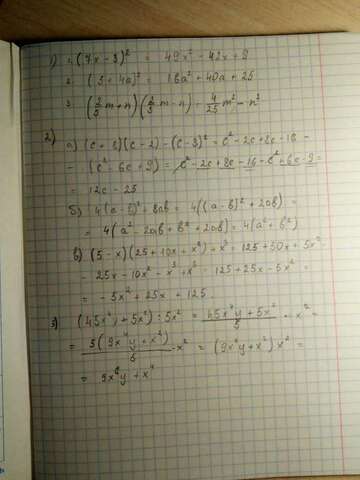 1) 1. (7x - 3)² = 49x² - 42x + 9
2. (5 + 4a)² = 16a² + 40a + 25
3. (2/5 m + n)(2/5 m - n) = 4/25 m² - n²
2) а) (c + 8)(c - 2) - (c - 3)² = c² - 2c + 8c - 16 -
- (c² - 6c + 9) = c² - 2c + 8c - 16 - c² + 6c - 9 =
= 12c - 25
б) 4(a - b)² + 8ab = 4((a - b)² + 2ab) =
= 4(a² - 2ab + b² + 2ab) = 4(a² + b²)
в) (5 - x)(25 + 10x + x²) + x³ = 125 + 50x + 5x² -
- 25x - 10x² - x³ + x³ = 125 + 25x - 5x² =
= -5x² + 25x + 125
3) (45x⁴y + 5x²) : 5x² = 45x⁴y + 5x² / 5 · x² =
= 5(9x⁴y + x²) / 5 · x² = (9x⁴y + x²) x² =
= 9x⁶y + x⁴